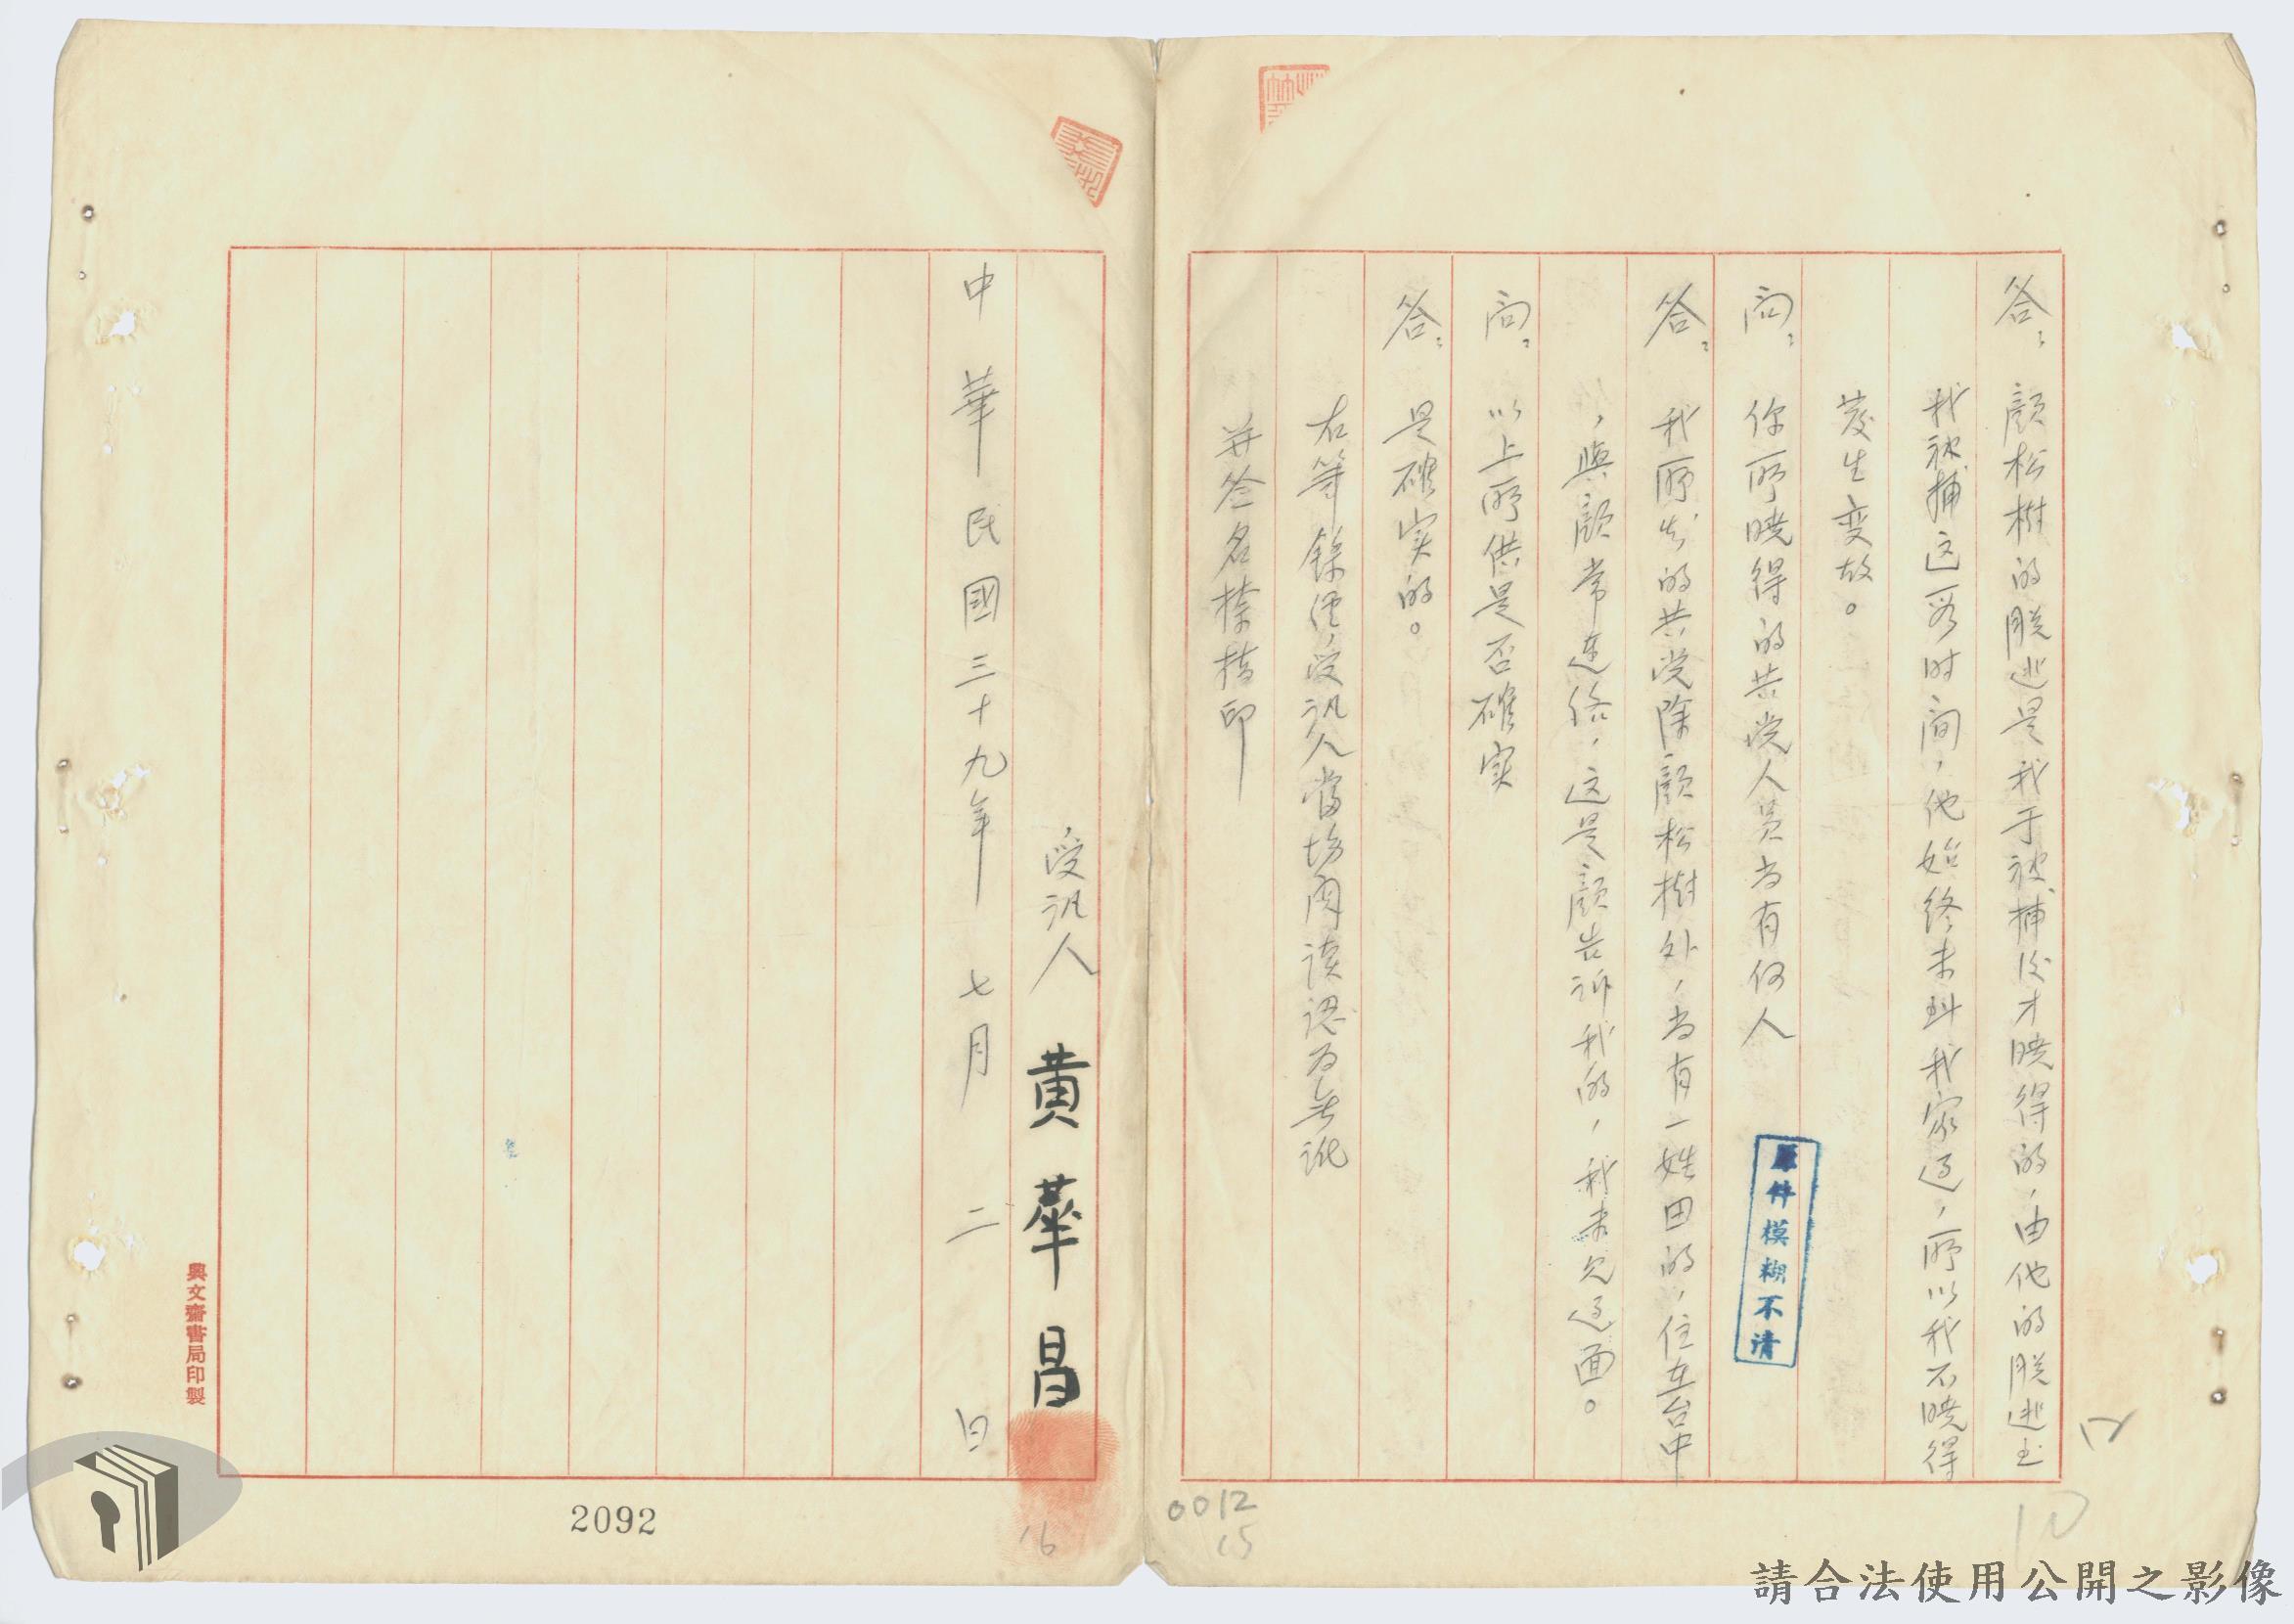 答：顏松樹的脫逃是我于被捕后才曉得的，由他的脫逃至
我被捕这一段时间，他始終未到我家过，所以我不曉得
發生变故。
问：你所曉得的共党人員尚有何人
答：我所知的共党除顏松樹外，尚有一姓田的，住在台中
，與顏常連络，这是顏告诉我的，我未見过面。
问：以上所供是否確实
答：是確实的。
右等錄經受讯人當場閱读認为無訛
并签名捺指印
原件模糊不清
受讯人 黃華昌
中華民國三十九年 七月 二 日
興文齋書局印製
2092
16
0012
15
請合法使用公開之影像